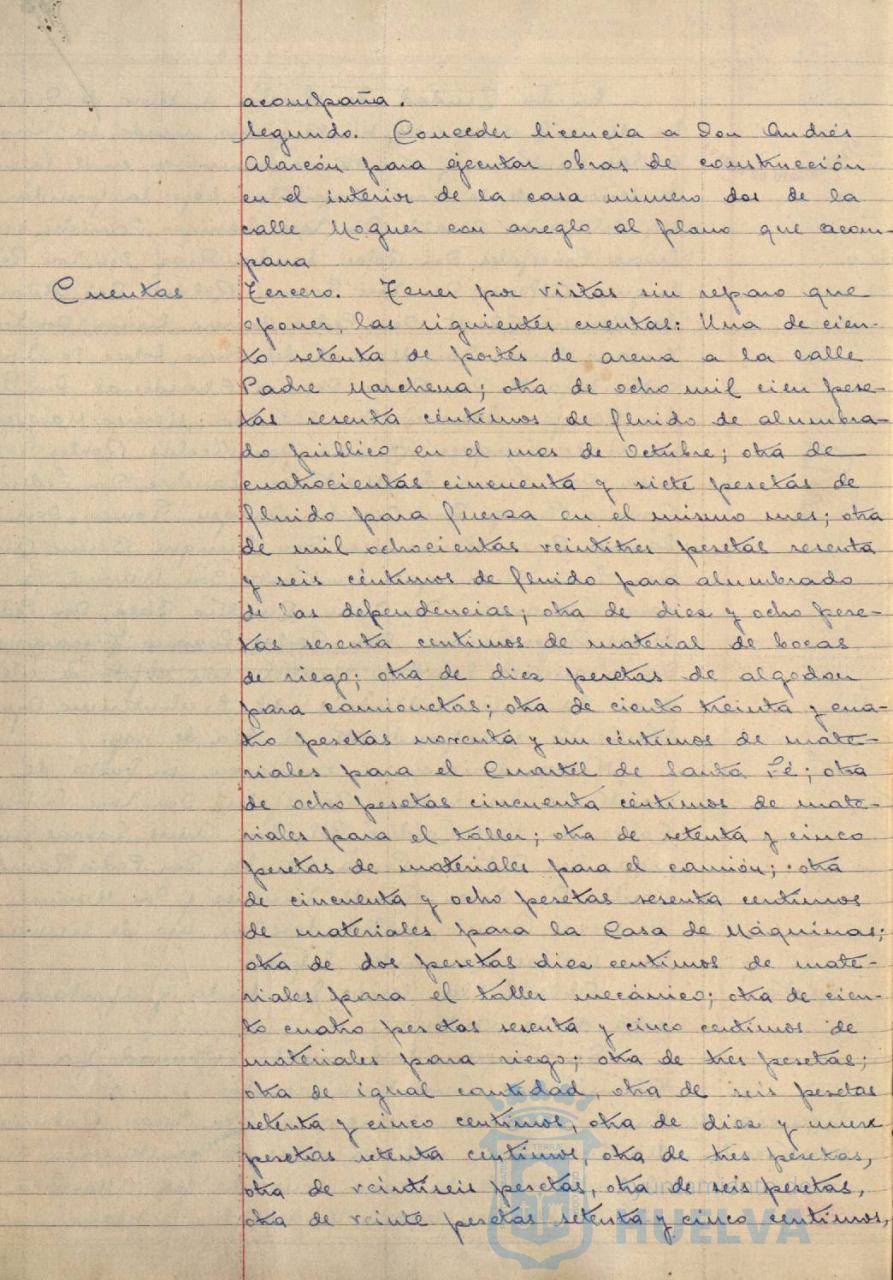 acompaña.
Segundo. Conceder licencia a Don Andrés
Alarcón para ejecutar obras de construcción
en el interior de la casa número dos de la
calle Moguer con arreglo al plano que acom-
pana
Cuentas
Tercero. Tener por vistas sin reparo que
oponer, las siguientes cuentas: Una de cien-
to setenta de portes de arena a la calle
Padre Marchena; otra de ocho mil cien pese-
tas sesenta céntimos de fluido de alumbra-
do público en el mes de Octubre; otra de
cuatrocientas cincuenta y siete pesetas de
fluido para fuerza en el mismo mes; otra
de mil ochocientas veintitres pesetas sesenta
y seis céntimos de fluido para alumbrado
de las dependencias; otra de diez y ocho pese-
tas sesenta centimos de material de bocas
de riego; otra de diez pesetas de algodon
para camionetas; otra de ciento treinta y cua-
tro pesetas noventa y un céntimos de mate-
riales para el Cuartel de Santa Fé; otra
de ocho pesetas cincuenta céntimos de mate-
riales para el taller; otra de setenta y cinco
pesetas de materiales para el camión; otra
de cincuenta y ocho pesetas sesenta centimos
de materiales para la Casa de Máquinas;
otra de dos pesetas diez centimos de mate-
riales para el taller mecánico; otra de cien-
to cuatro pesetas sesenta y cinco centimos de
materiales para riego; otra de tres pesetas;
otra de igual cantidad, otra de seis pesetas
setenta y cinco centimos, otra de diez y nueve
pesetas setenta centimos, otra de tres pesetas,
otra de veintiseis pesetas, otra de seis pesetas,
otra de veinte pesetas setenta y cinco centimos,
Ayuntamiento de
HUELVA